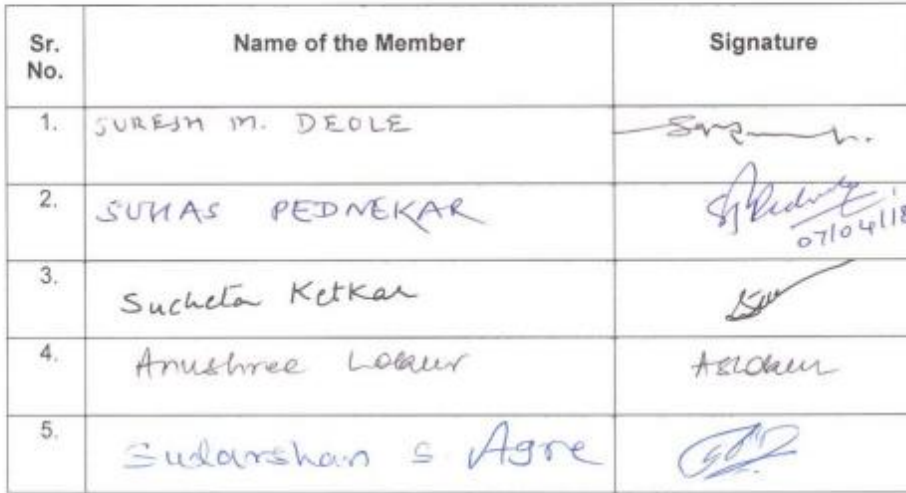 Sr. No. Name of the Member Signature
1. SURESH M. DEOLE
2. SUHAS PEDNEKAR
07/04/18
3. Sucheta Ketkar
4. Anushree Lokur
5. Sudarshan S Agre